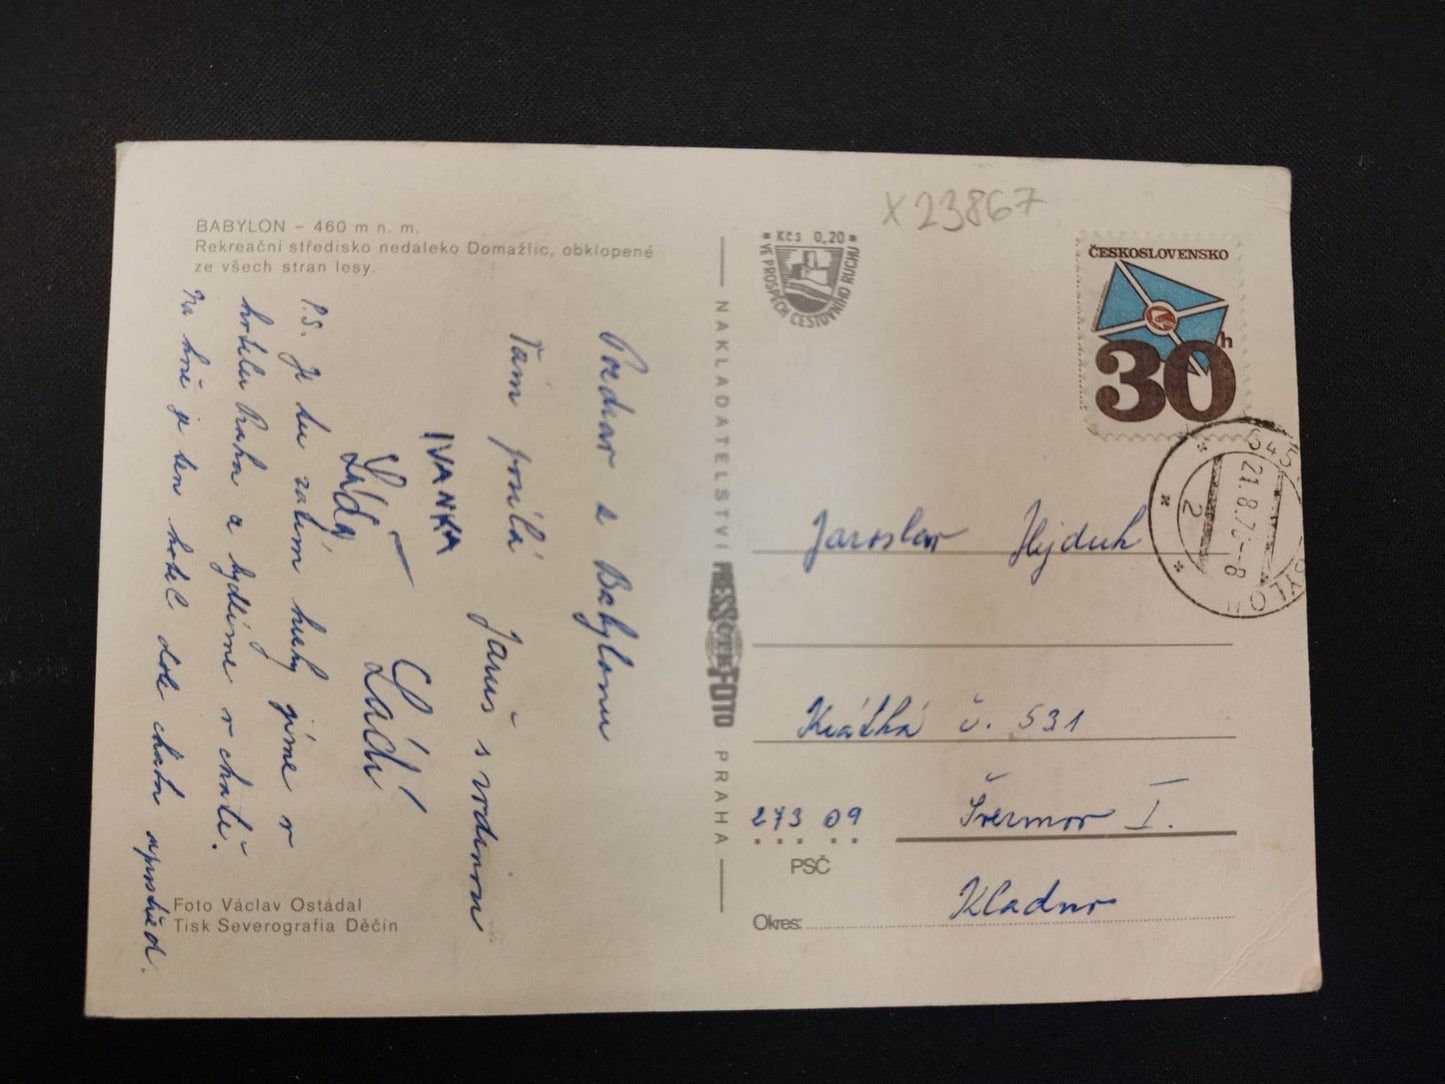 BABYLON – 460 m n. m.
Rekreační středisko nedaleko Domažlic, obklopené
ze všech stran lesy.
Pozdrav z Babylonu
Vám posílá
Jaruš s rodinou
IVANKA
Láďa
Ládi
P.S. Je tu zatím hezky jíme v
hotelu Praha a bydlíme v chatě.
Na foto je ten hotel dole chata uprostřed.
Foto Václav Ostádal
Tisk Severografia Děčín
NAKLADATELSTVÍ PRESSFOTO PRAHA
X 23867
Kčs 0,20
VE PROSPĚCH CESTOVNÍHO RUCHU
ČESKOSLOVENSKO
30h
345
21.8.7 -8
2
BYLON
Jaroslav Hejduk
Krátká č. 531
273 09 Švermov I.
PSČ
Kladno
Okres: